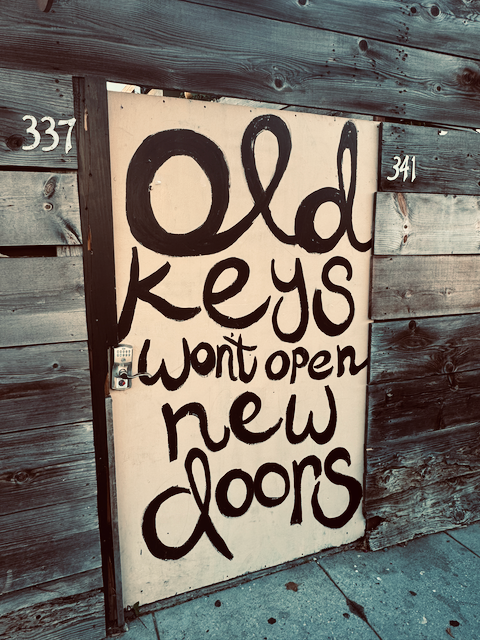 337
341
Old
keys
won't open
new
doors